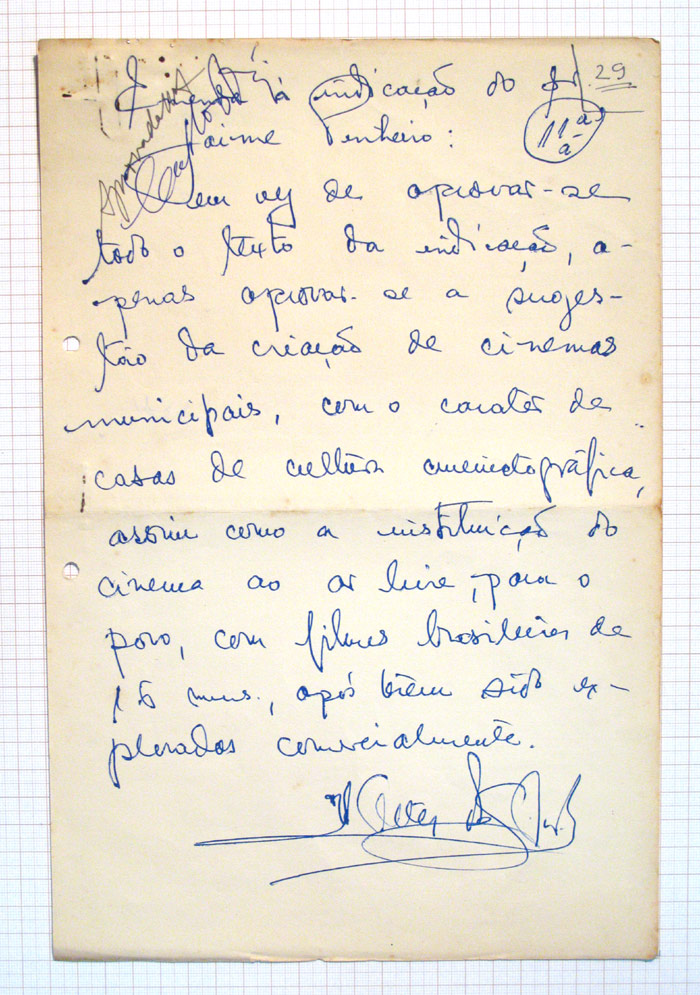 Emenda à indicação do Sr. 29
Jaime Pinheiro: 11ª
Em vez de aprovar-se
todo o texto da indicação, a-
penas aprovar-se a suges-
tão da criação de cinemas
municipais, com o carater de
casas de cultura cinematográfica,
assim como a instituição do
cinema ao ar livre, para o
povo, com filmes brasileiros de
16 mms., após terem sido ex-
plorados comercialmente.